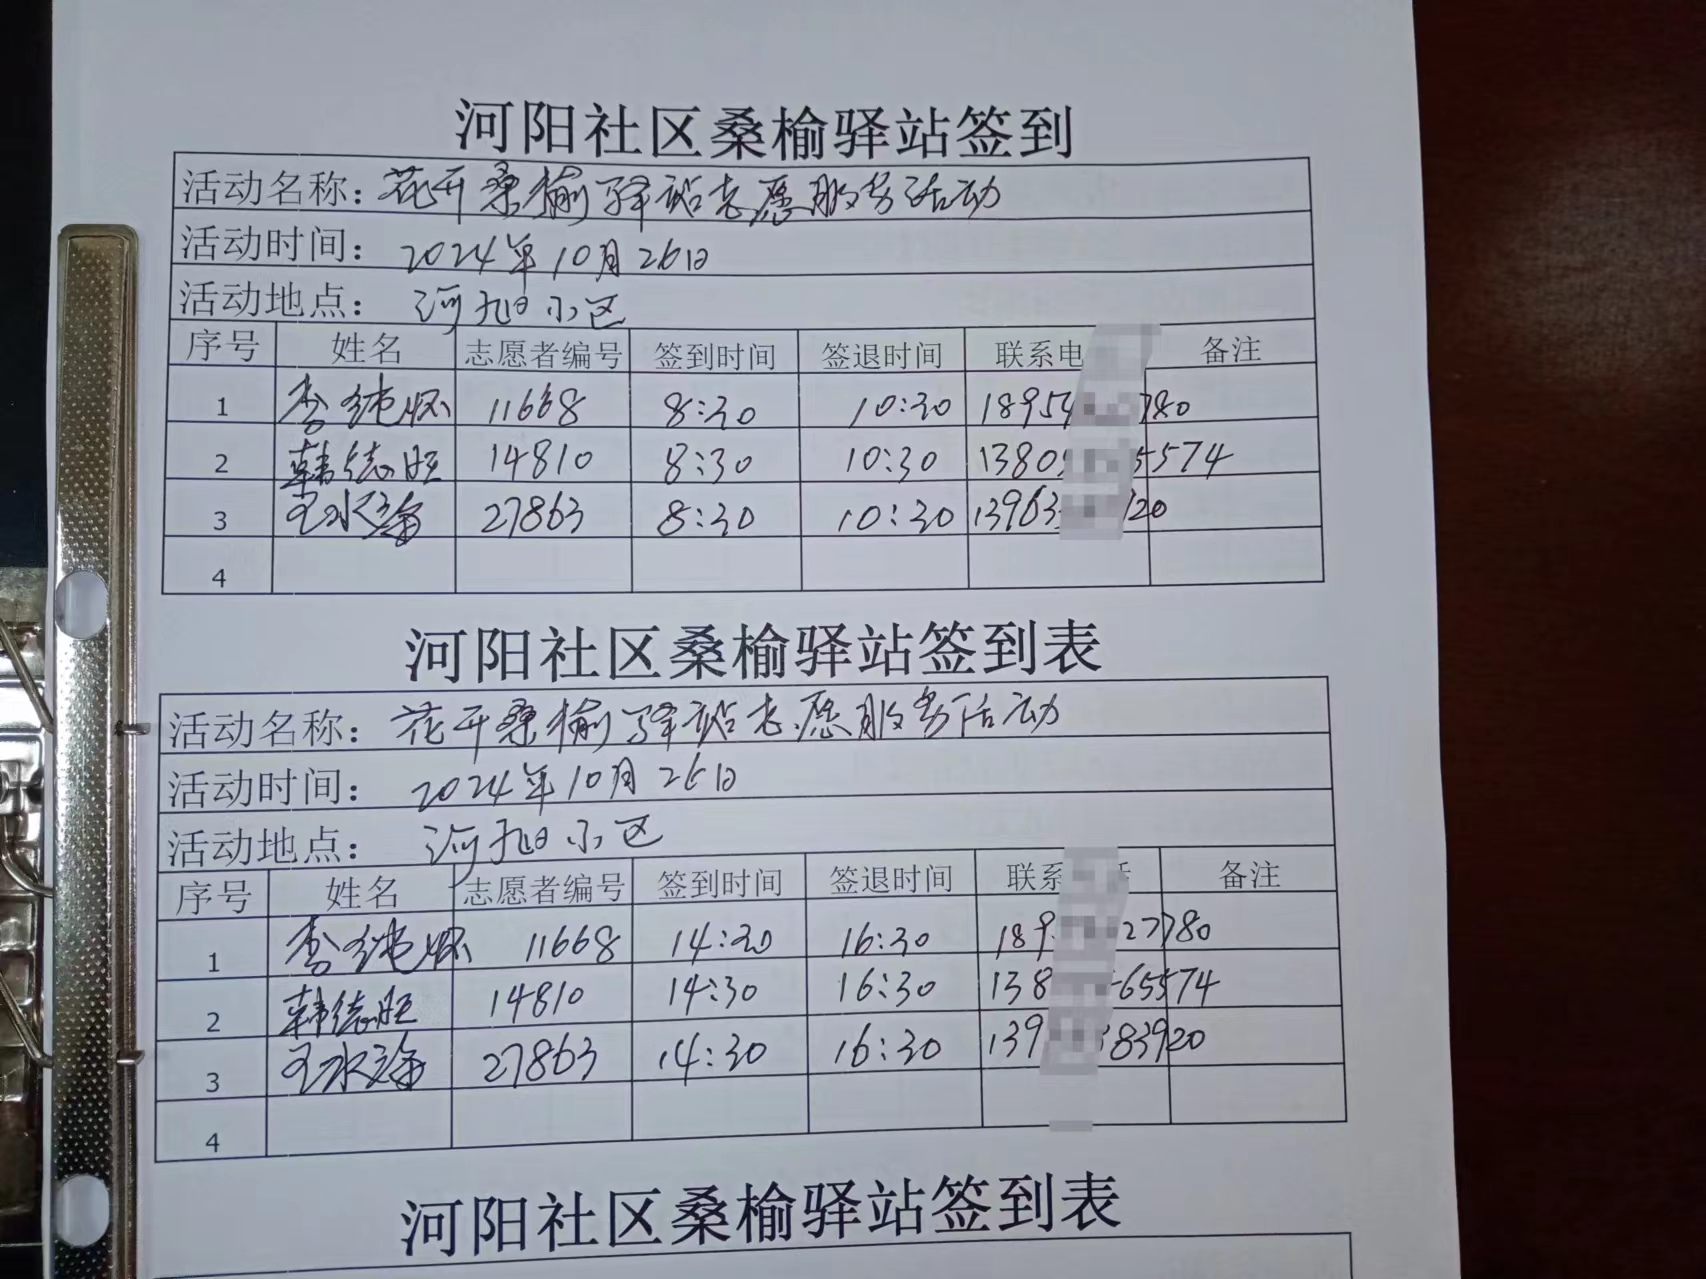 河阳社区桑榆驿站签到
活动名称：花开桑榆驿站志愿服务活动
活动时间： 2024年10月26日
活动地点： 河旭小区
序号 姓名 志愿者编号 签到时间 签退时间 联系电 备注
1 李纯怀 11668 8:30 10:30 1895 780
2 韩德旺 14810 8:30 10:30 1380 5574
3 27863 8:30 10:30 13963 20
4
河阳社区桑榆驿站签到表
活动名称： 花开桑榆驿站志愿服务活动
活动时间： 2024年10月26日
活动地点： 河旭小区
序号 姓名 志愿者编号 签到时间 签退时间 联系 备注
1 李纯怀 11668 14:30 16:30 189 27780
2 韩德旺 14810 14:30 16:30 138 65574
3 27863 14:30 16:30 139 83920
4
河阳社区桑榆驿站签到表